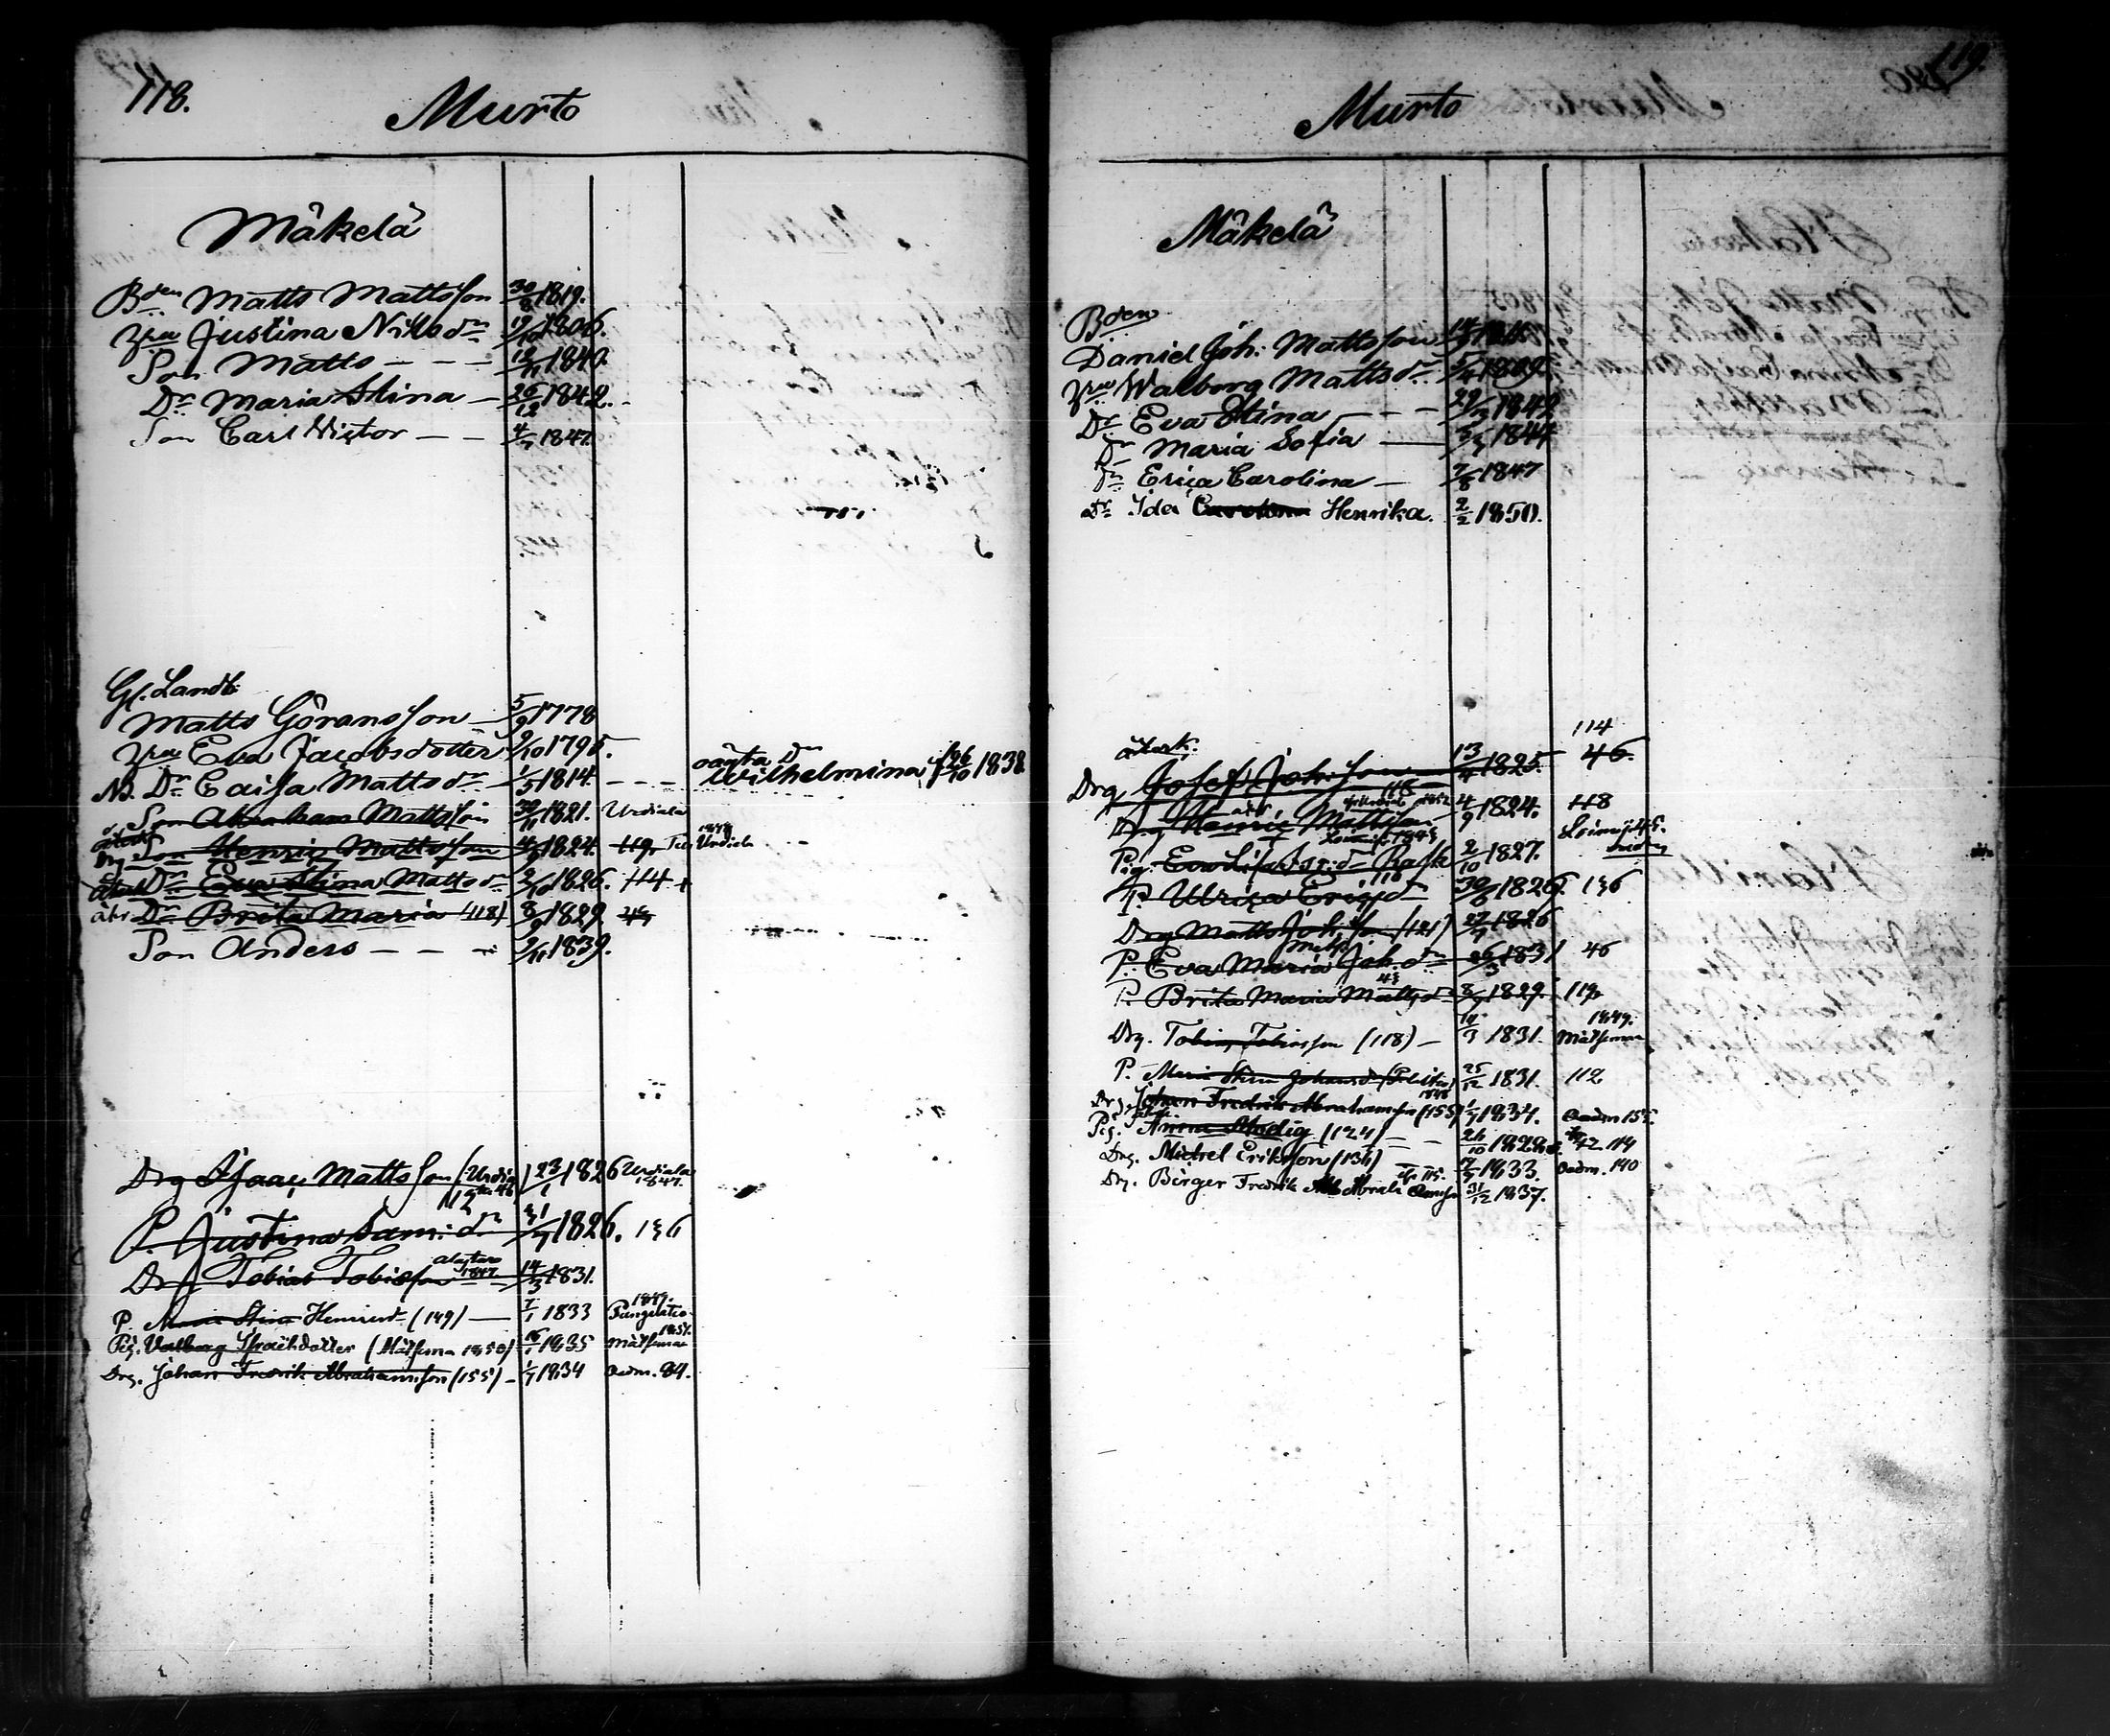 118.
Murto
Mäkelä
Bden Matts Mattsson 30/8 1819.
Hru Justina Nilsdr 19/10 1806.
Son Matts 12/11 1840.
Dr Maria Stina 26/12 1842.
Son Carl Victor 4/7 1847.
Gl. Landb:
Matts Göransson 5/9 1778
Hru Eva Jacobsdotter 9/10 1795.
N. Dr Caisa Mattsdr 1/5 1814. oägta Dr Wilhelmina f. 26/10 1838
Son Abraham Mattsson 30/11 1821. Urdiala
Drg Son Henric Mattsson 4/9 1824. 119. Urdiala
Dr Eva Stina Mattsdr 2/10 1826. 114
Dr Brita Maria (118) 8/9 1829
Son Anders 9/11 1839.
Drg Isaac Mattsson (Urdia 23/1 1826 Urdiala 1847.
P. Justina Sam:dr 31/7 1826. 136
Drg Tobias Tobiasson 1847 14/3 1831.
P. Maria Stina Henricsdr (149) 7/1 1833 1849.
Pig. Valborg Isracksdotter (Mätsema 1850) 16/1 1835 Mätsema 1851.
Drg. Johan Fredrik Abrahamsson (155) 1/7 1834 Oedm. 94.
119.
Murto
Mäkelä
Bden
Daniel Joh: Mattsson
Hru Walborg Mattsdr 5/4 1809
Dr Eva Stina 29/3 1842
Dr Maria Sofia 1844
Dr Erica Carolina 7/8 1847
Dr Ida Carolina Henrika. 2/2 1850.
114
Drg Josef Joh:sson 13/4 1825 46.
Drg Henric Mattsson 118 4/9 1824. 118
Pig. Eva Lisa Rask 2/10 1827.
P. Ulrica Ericsdr 116 30/6 1826. 136
Drg Matts Joh:son (121) 27/9 1826
P. Eva Maria Joh.dr 26/3 1831 46
P. Brita Maria Mattsdr 43 8/9 1829. 119
Drg. Tobias Tobiasson (118) 14/3 1831. 1849. Mätsema
P. Maria Stina Johansdr 25/12 1831. 112
Drg. Johan Fredrik Abrahamsson (155) 1/7 1834. Oedm 155.
Pig. Anna Modig (124) 26/10 1828 42 119
Drg. Michel Eriksson (136) 17/9 1833. Oedm. 140
Dr. Birger Fredrik 115. 31/12 1837.